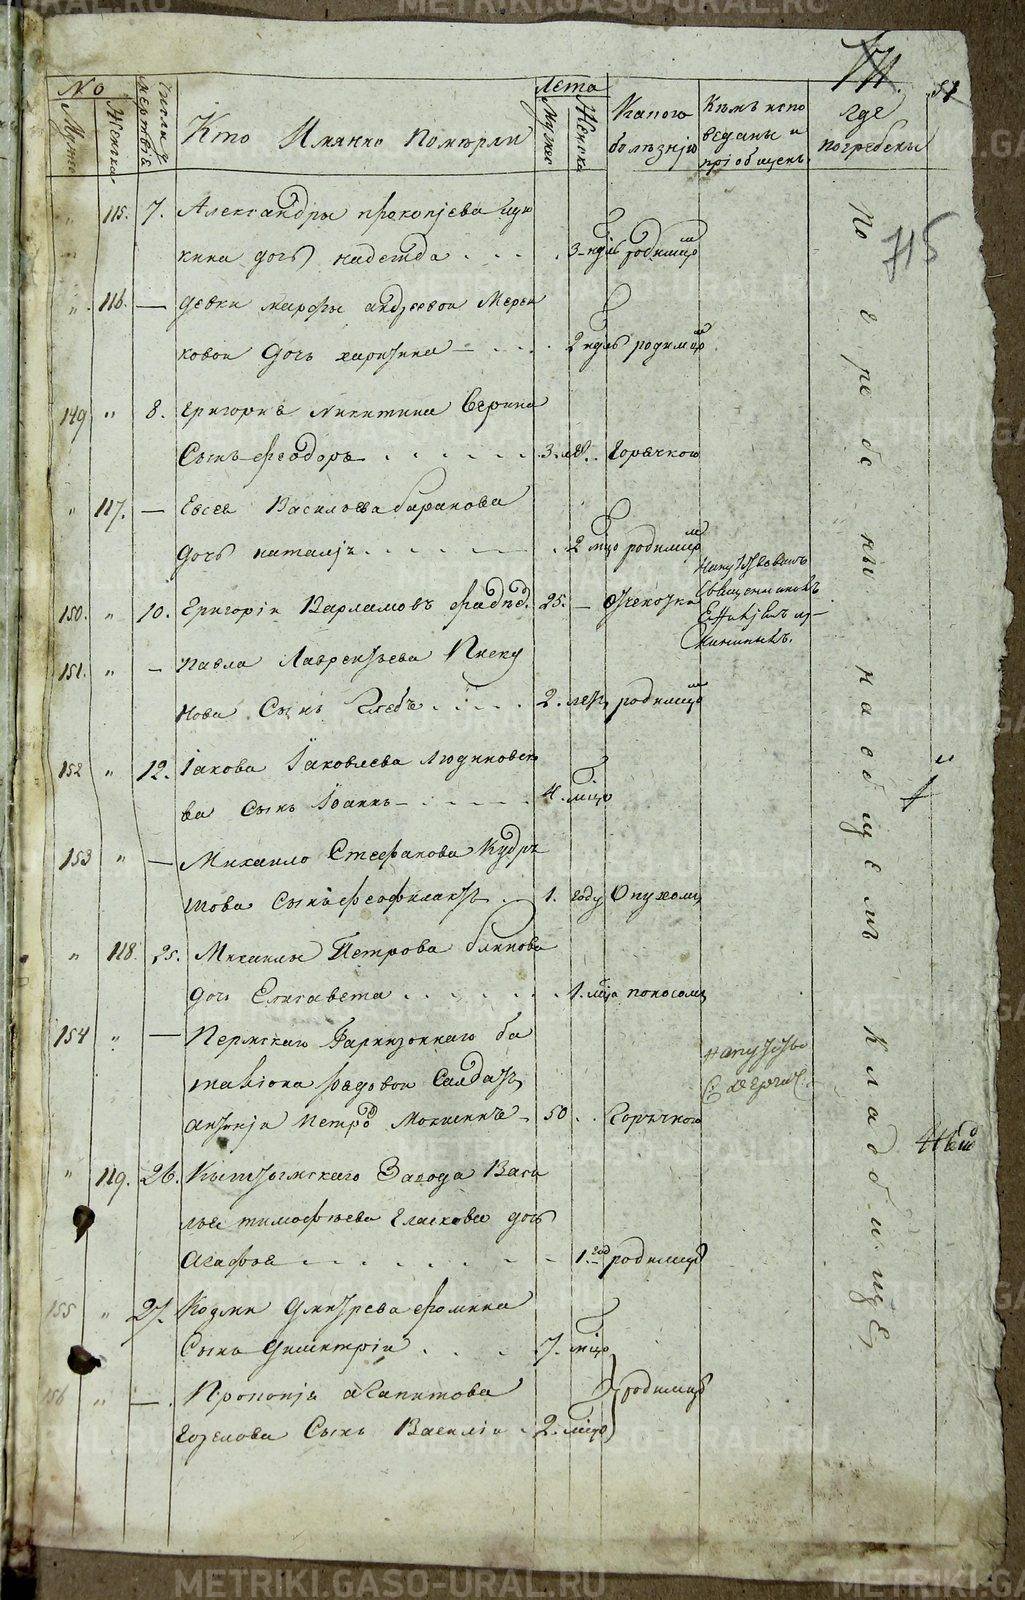 METRIKI.GASO-URAL.RU
171.
57
№
Мужс
Женска
число мертвіе
Кто Имянно Померли
Лета
Мужес
Женска
Какого болѣзнію
Къмъ испо
веданы и
пріобщены
где
погребены
715
" 115. 7. Александры прокопіева
кина дочь надежда 3 ндль родимца
" 116. — девки марфы андреевой Мерен
ковой дочь харитина — 2 ндль родимца
149 " 8. григорія никитина Верина
Сынъ феодоръ 3. лѣ. Горячкою
" 117. — Евсея Василюева баранова
дочь наталія 2 мцо родимца
150. " 10. Григорій Варламовъ 25. — Отчекотки
напутствованъ
священникомъ
151. " — павла Лаврентьева Писку
нова Сынъ Глебъ 2. лет родимца
152 " 12. Іакова Іаковлева Людиновско
ва Сынъ Іоаннъ 4. мцо
153 " — Михаило Стефанова Кудря
шова Сынъ феофилактъ 1. году Опухоли
" 118. 25. Михаилы Петрова блинова
дочь Елисавета 1. мца поносомъ
154 " — Пермскаго Гарнизоннаго ба
таліона рядовой Салдатъ
антоній петро Мокшинъ 50 Горячкою
напутство
С. Георгіи
" 119. 26. Кыштымскаго Завода Васи
лья тимофѣева Гласкова дочь
Агафія 1. год родимца
155 " 27. Козми дмитрева фомина
Сынъ димитріи 7. мцо
156 " — Прокопія агапитова
Козелова Сынъ Василіи 2. мцо родимца
По гребены на общемъ Кладбище
METRIKI.GASO-URAL.RU